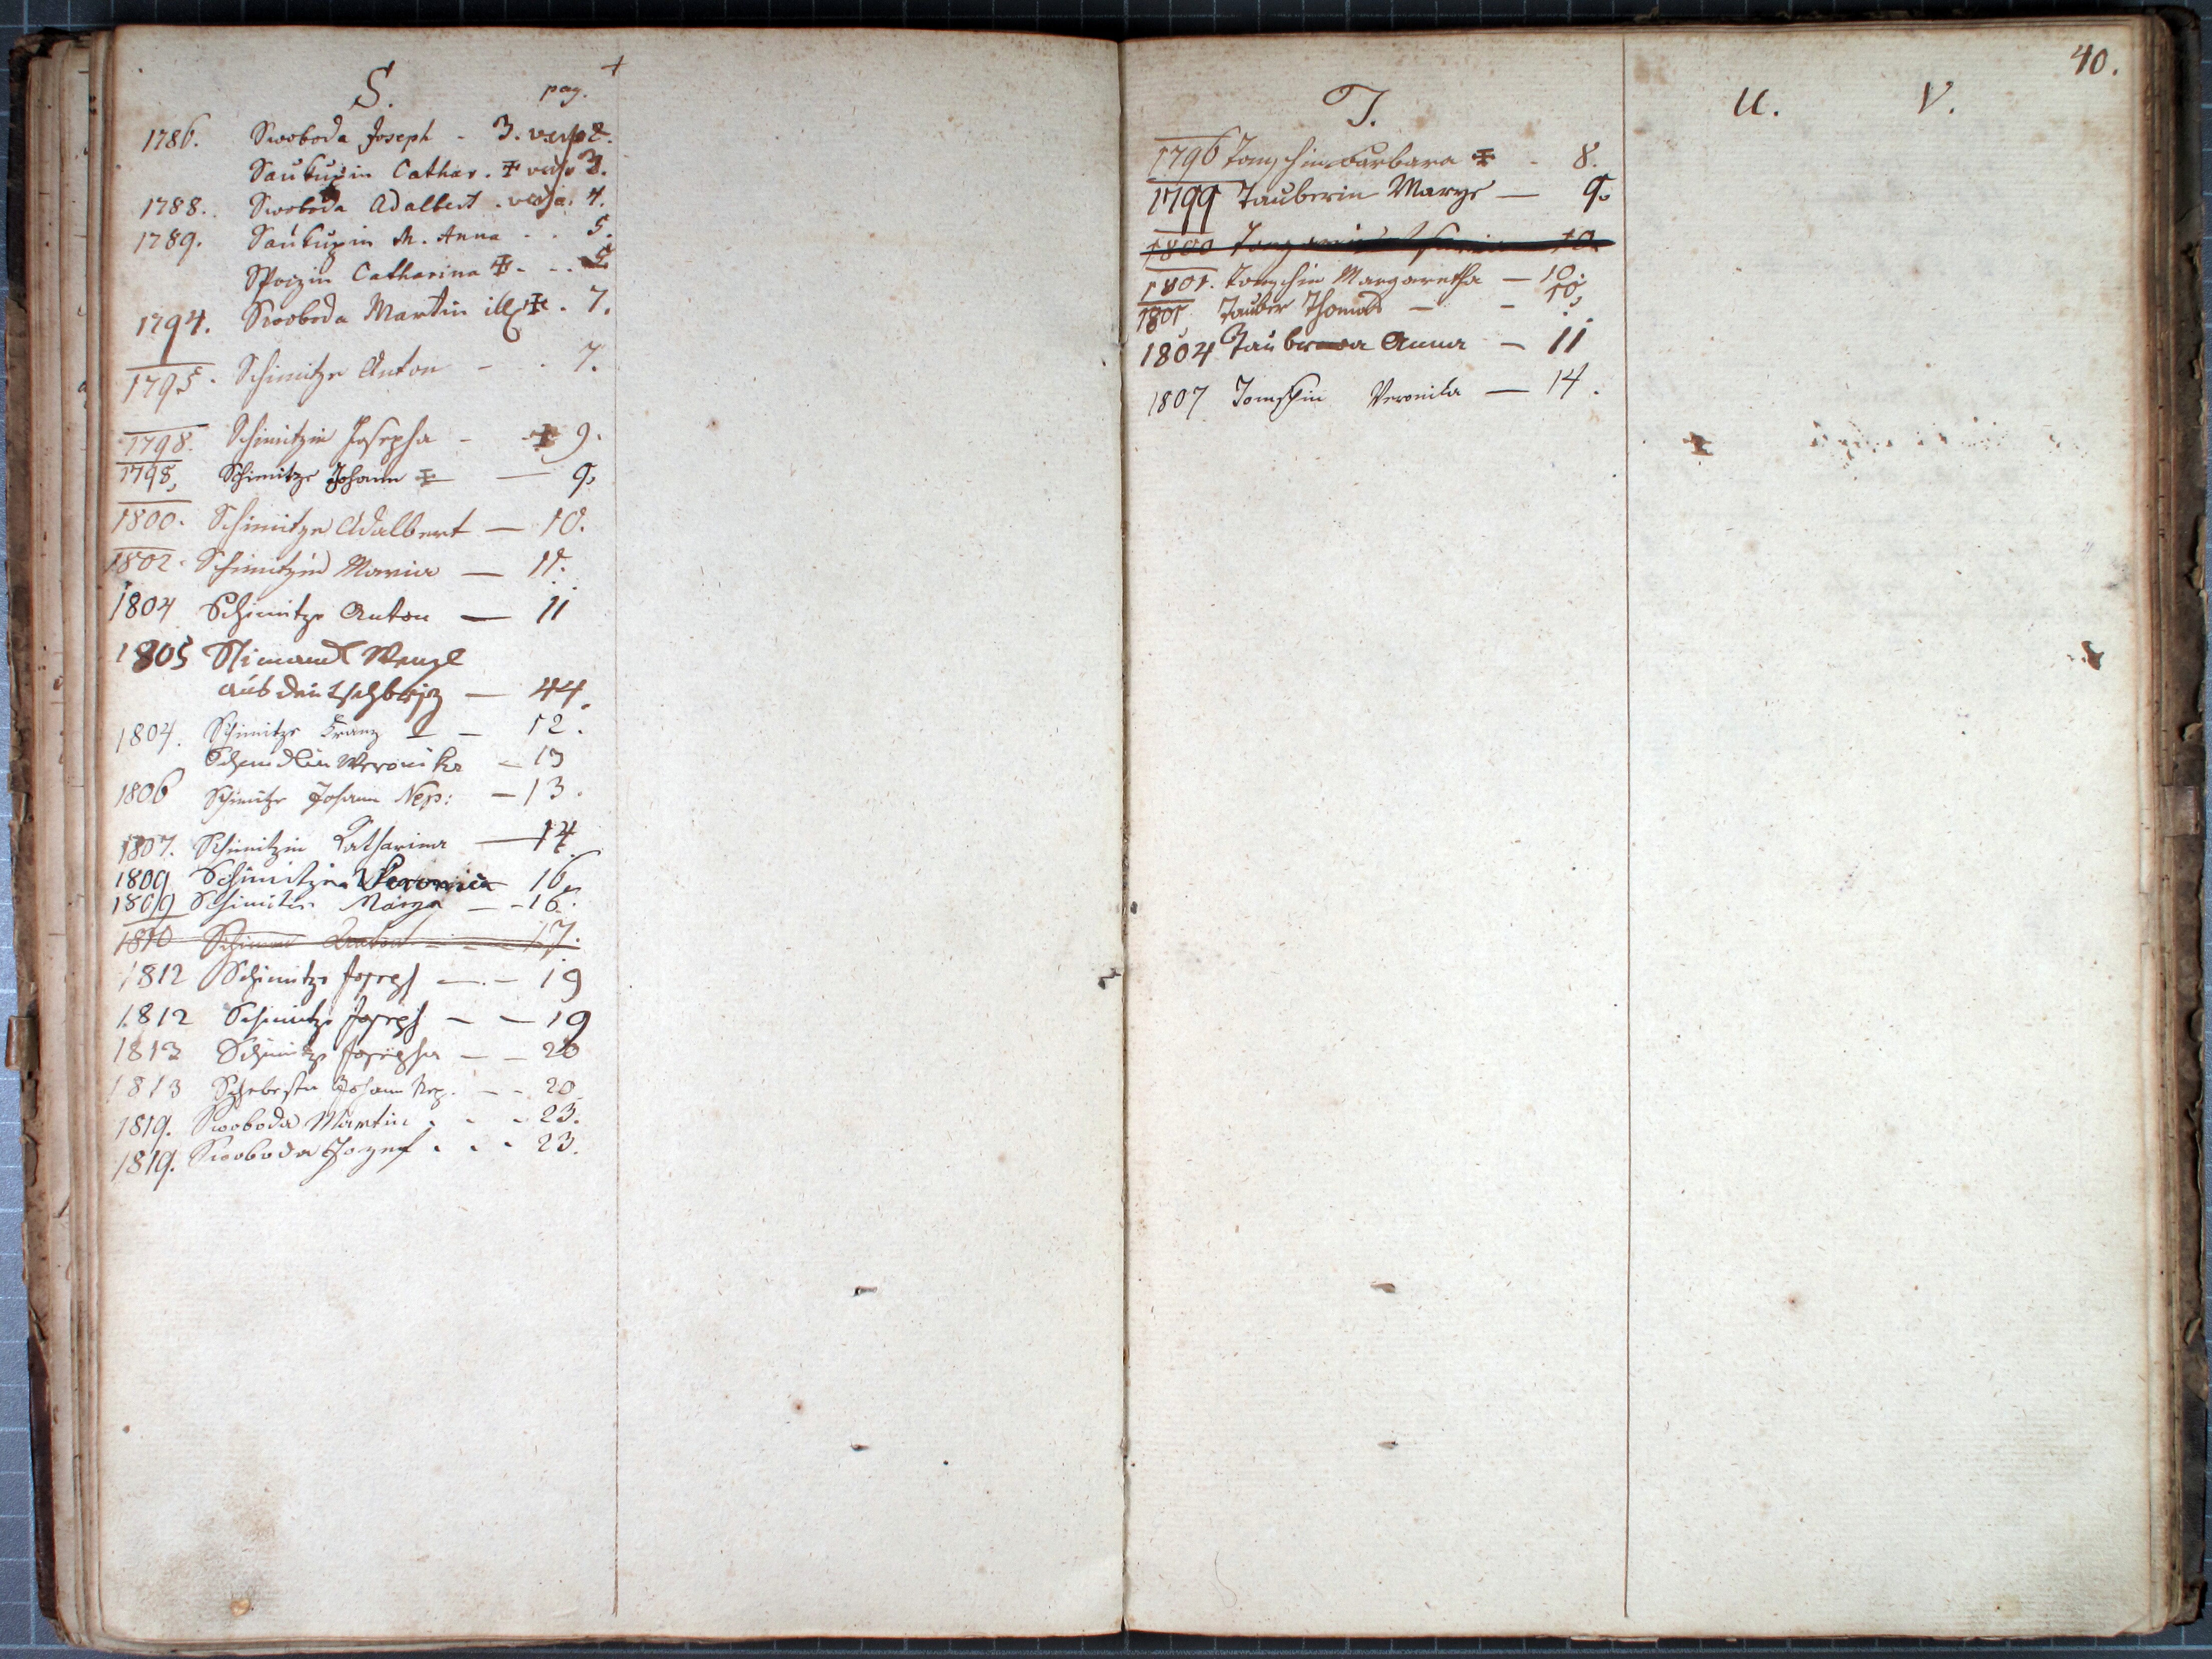 S. pag.
1786. Swoboda Joseph - 3. verso 2.
Saukupin Cathar. ✠ verso 3.
1788. Swoboda Adalbert . versa. 4.
1789. Saukupin M. Anna . . 5.
Catharina ✠ - . . 5
1794. Swoboda Martin ill ✠ . 7.
1795. Schimitze Anton - . 7.
1798. Schimitzin Josepha - ✠ 9.
1798, Schimitze Johann ✠ — 9.
1800. Schimitze Adalbert — 10.
1802. Schimitzin Maria — 11.
1804 Schimitze Anton — 11
1805 Wenzl
aus — 44.
1804. Schimitze Franz — - 12.
Weronika — 13
1806 Schimitze Johann Nep: — 13.
1807. Schimitzin Catharina — 14.
1809 Schimitzin Veronica 16.
1809 Schimitzin — - 16.
1810 Anton - - 17.
1812 Schimitze Joseph — . - 19
1812 Schimitze Joseph — — 19
1813 Schimitze Josepha — — 20
1813 Schebesta Johann Nep. — - 20
1819. Swoboda Martin . . - 23.
1819. Swoboda Jozef . . . 23.
T.
1796 Tomschin Barbara ✠ - 8.
1799 Tauberin Marye — 9.
1800 10.
1801. Tomschin Margaretha — 10.
1801 Tauber Thomas — - 10.
1804 Anna — 11
1807 Tomschin Veronika — 14.
40.
U. V.